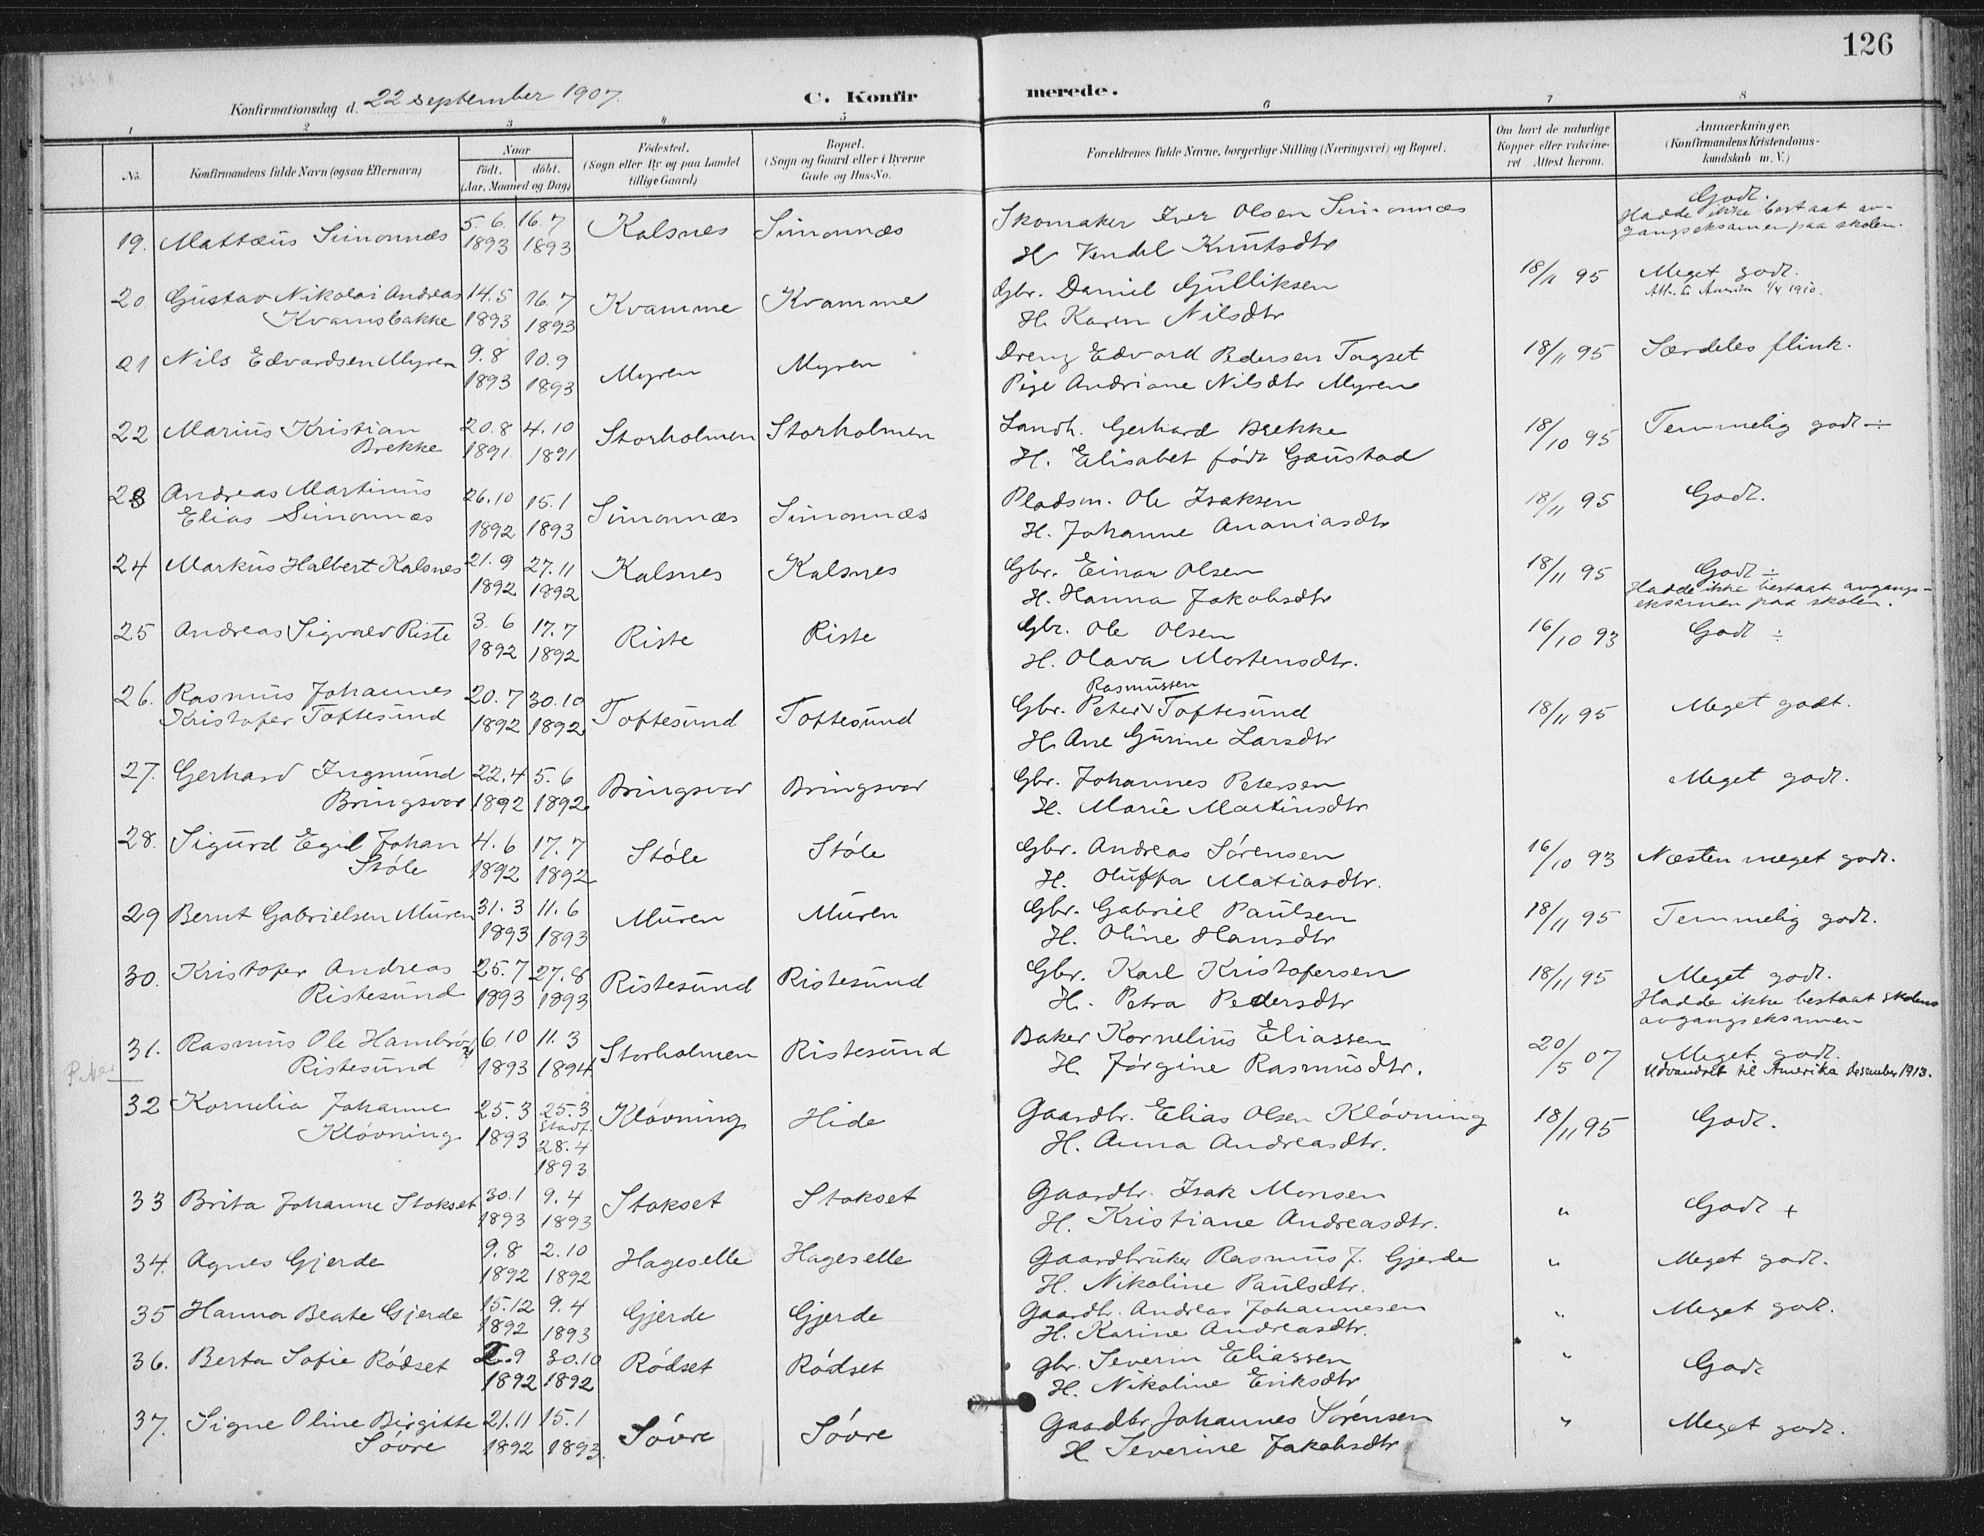 126
Konfirmationsdag d. 22 september 1907.
C. Konfirmerede.
1 2 3 4 5 6 7 8
No. Konfirmandens fulde Navn (ogsaa Efternavn) Naar födt. döbt. (Aar, Maaned og Dag) Födested. (Sogn eller By og paa Landet tillige Gaard) Bopæl. (Sogn og Gaard eller i Byerne Gade og Hus-No. Forældrenes fulde Navne, borgerlige Stilling (Næringsvei) og Bopæl. Om havt de naturlige Kopper eller vakcineret Attest herom. Anmærkninger. (Konfirmandens Kristendomskundskab m. V.)
19. Mattæus Simonnæs 5.6 1893 16.7 1893 Kalsnes Simonnæs Skomaker Iver Olsen Simonnæs
H. Vendel Knutsdtr
Godt.
Hadde ikke bestaat av-
gangseksamen paa skolen.
20 Gustav Nikolai Andreas
Kvamsbakke 14.5 1893 16.7 1893 Kvamme Kvamme Gbr. Daniel Gulliksen
H. Karen Nilsdtr
18/11 95 Meget godt.
Att. til Amerika 1/4 1910.
21 Nils Edvardsen Myren 9.8 1893 10.9 1893 Myren Myren Dreng Edvard Pedersen Tagset
Pige Andriane Nilsdtr Myren
18/11 95 Særdeles flink.
22 Marius Kristian
Brekke 20.8 1891 4.10 1891 Storholmen Storholmen Landh. Gerhard Brekke
H. Elisabet født Gaustad
18/10 95 Temmelig godt ÷
23 Andreas Martinus
Elias Simonnæs 26.10 1892 15.1 1893 Simonnæs Simonnæs Pladsm. Ole Isaksen
H. Johanne Ananiasdtr
18/11 95 Godt.
24 Markus Halbert Kalsnes 21.9 1892 27.11 1892 Kalsnes Kalsnes Gbr. Einar Olsen
H. Hanna Jakobsdtr
18/11 95 Godt ÷
Hadde ikke bestaat avgangs-
eksamen paa skolen.
25 Andreas Sigvald Riste 3.6 1892 17.7 1892 Riste Riste Gbr. Ole Olsen
H. Olava Mortensdtr.
16/10 93 Godt ÷
26. Rasmus Johannes
Kristofer Toftesund 20.7 1892 30.10 1892 Toftesund Toftesund Gbr. Peter Rasmussen Toftesund
H. Ane Gurine Larsdtr
18/11 95 Meget godt.
27. Gerhard Ingmund
Bringsvor 22.4 1892 5.6 1892 Bringsvor Bringsvor Gbr. Johannes Petersen
H. Marie Martinsdtr
Meget godt.
28. Sigurd Egil Johan
Støle 4.6 1892 17.7 1892 Støle Støle Gbr. Andreas Sørensen
H. Oluffa Matiasdtr.
16/10 93 Næsten meget godt.
29 Bernt Gabrielsen Muren 31.3 1893 11.6 1893 Muren Muren Gbr. Gabriel Paulsen
H. Oline Hansdtr
18/11 95 Temmelig godt.
30. Kristofer Andreas
Ristesund 25.7 1893 27.8 1893 Ristesund Ristesund Gbr. Karl Kristofersen
H. Petra Pedersdtr
18/11 95 Meget godt.
Hadde ikke bestaat skolens
avgangseksamen
31. Rasmus Ole Hambro
Ristesund 6.10 1893 11.3 1894 Storholmen Ristesund Baker Kornelius Eliassen
H. Jørgine Rasmusdtr.
20/5 07 Meget godt.
Udvandret til Amerika desember 1913.
32 Kornelia Johanne
Kløvning 25.3 1893 25.3 Stadf. 28.4 1893 Kløvning Hide Gaardbr. Elias Olsen Kløvning
H. Anna Andreasdtr.
18/11 95 Godt.
33 Brita Johanne Stokset 30.1 1893 9.4 1893 Stokset Stokset Gaardbr. Isak Monsen
H. Kristiane Andreasdtr.
" Godt +
34. Agnes Gjerde 9.8 1892 2.10 1892 Hageselle Hageselle Gaardbruker Rasmus J. Gjerde
H. Nikoline Paulsdtr.
" Meget godt.
35 Hanna Beate Gjerde 15.12 1892 9.4 1893 Gjerde Gjerde Gaardbr. Andreas Johannesen
H. Karine Andreasdtr.
" Meget godt.
36. Berta Sofie Rødset 2.9 1892 30.10 1892 Rødset Rødset Gbr. Severin Eliassen
H. Nikoline Eriksdtr
" Godt
37. Signe Oline Birgitte
Søvre 21.11 1892 15.1 1893. Søvre Søvre Gaardbr Johannes Sørensen
H Severine Jakobsdtr
" Meget godt.